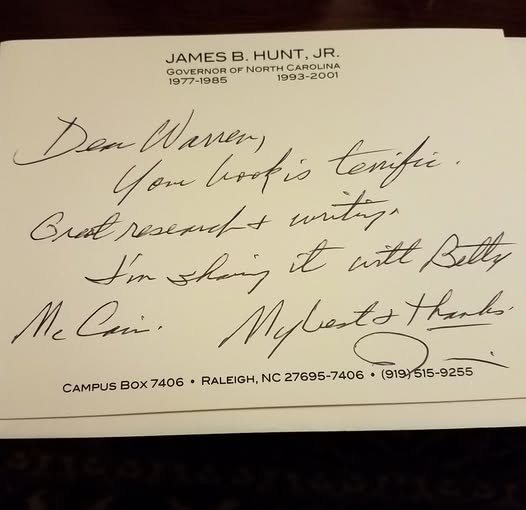 JAMES B. HUNT, JR.
GOVERNOR OF NORTH CAROLINA
1977-1985 1993-2001
Dear Warren,
Your book is terrific.
Great research & writing.
I'm sharing it with Betty
McCain. My best & thanks.
Jim
CAMPUS BOX 7406 • RALEIGH, NC 27695-7406 • (919) 515-9255